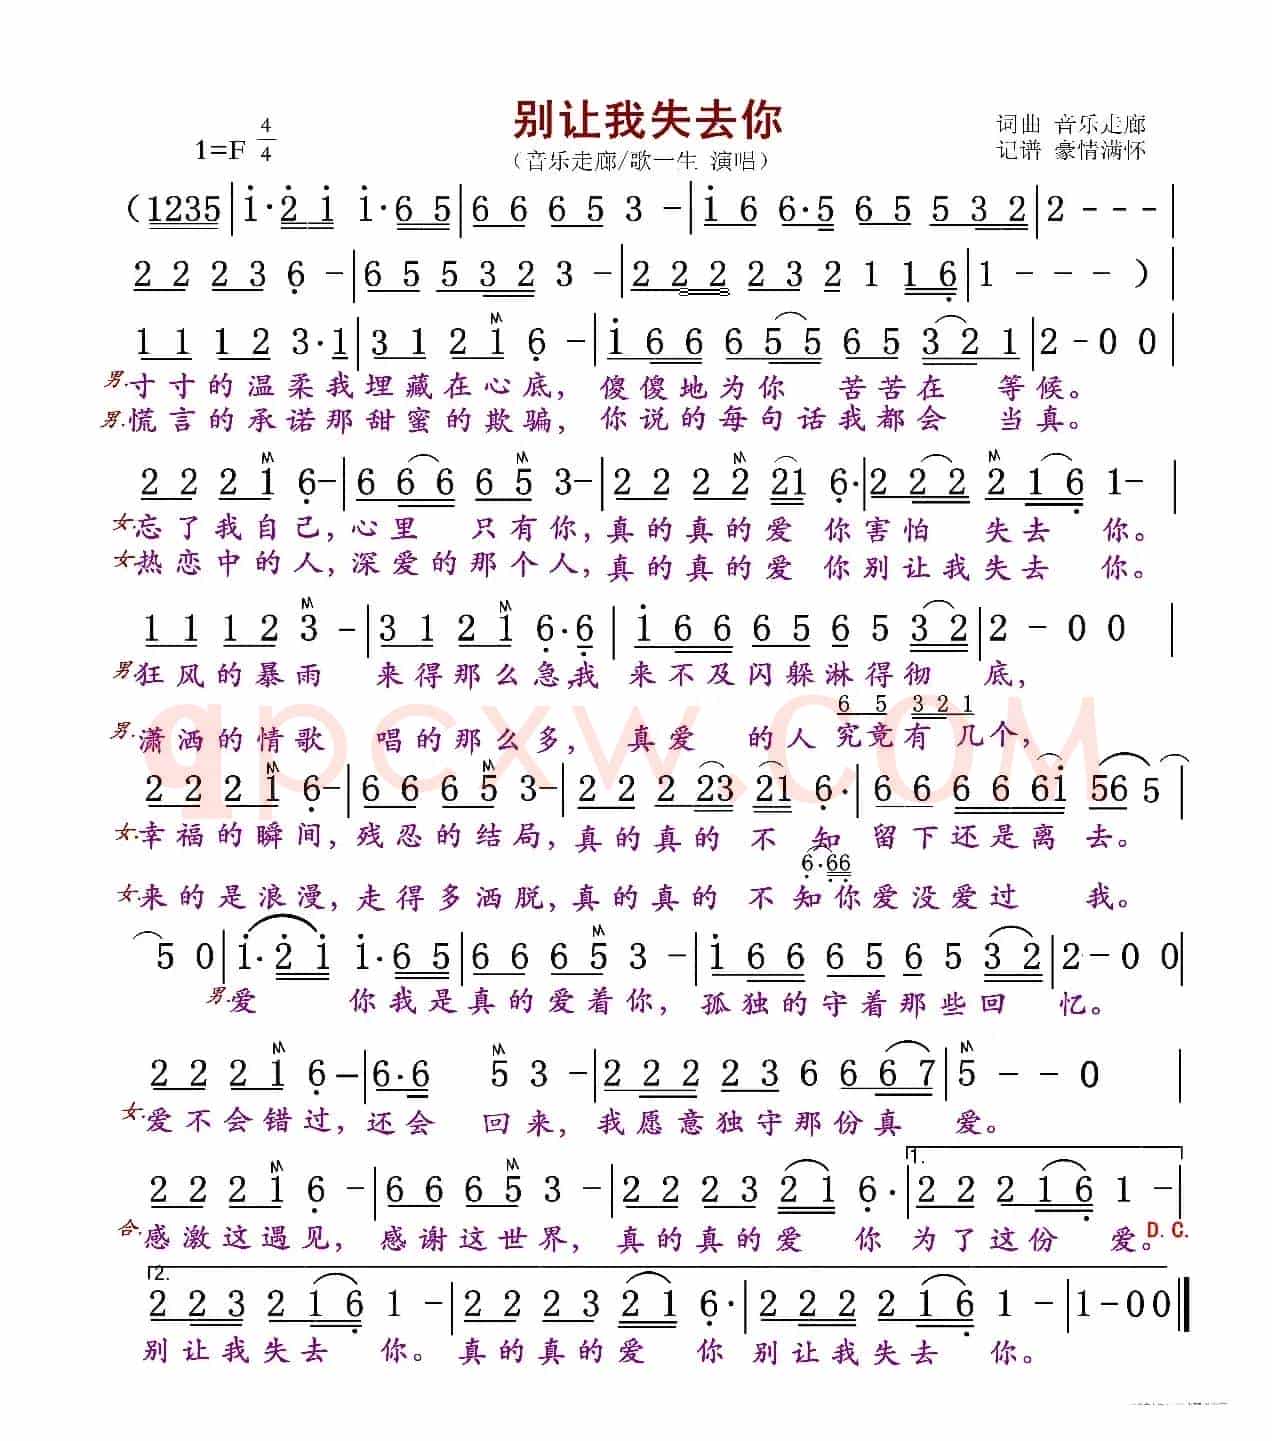 别让我失去你
1=F 4/4
(音乐走廊/歌一生 演唱)
词曲 音乐走廊
记谱 豪情满怀
(1235|i·2i i·65|6665 3-|i6 6·5 65532|2---|
2223 6-|65532 3-|222232 1 16|1---)|
1112 3·1|3121 6-|i666555 65321|2-00|
男.寸寸的温柔我埋藏在心底，傻傻地为你 苦苦在 等候。
男.慌言的承诺那甜蜜的欺骗，你说的每句话我都会 当真。
2221 6-|66665 3-|222221 6·|222216 1-|
女.忘了我自己，心里 只有你，真的真的爱 你害怕 失去 你。
女.热恋中的人，深爱的那个人，真的真的爱 你别让我失去 你。
1112 3-|3121 6·6|i66656532|2-00|
男.狂风的暴雨 来得那么急我 来不及闪躲淋得彻 底，
6 5 3 2 1
男.潇洒的情歌 唱的那么多， 真爱 的人 究竟有 几个，
2221 6-|6665 3-|2222321 6·|66666i 565|
女.幸福的瞬间，残忍的结局，真的真的 不 知 留下还是离 去。
6·66
女.来的是浪漫，走得多洒脱，真的真的 不 知你爱没爱过 我。
50|i·2i i·65|6665 3-|i66656532|2-00|
男.爱 你我是真的爱着你，孤独的守着那些回 忆。
2221 6-|6·6 5 3-|222236667|5--0|
女.爱不会错过，还会 回来，我愿意独守那份真 爱。
2221 6-|6665 3-|222321 6·|1.22216 1-|
合.感激这遇见，感谢这世界，真的真的爱 你 为了这份 爱。D.C.
2.
223216 1-|222321 6·|222216 1-|1-00||
别让我失去 你。真的真的爱 你 别让我失去 你。
qpcxw.com